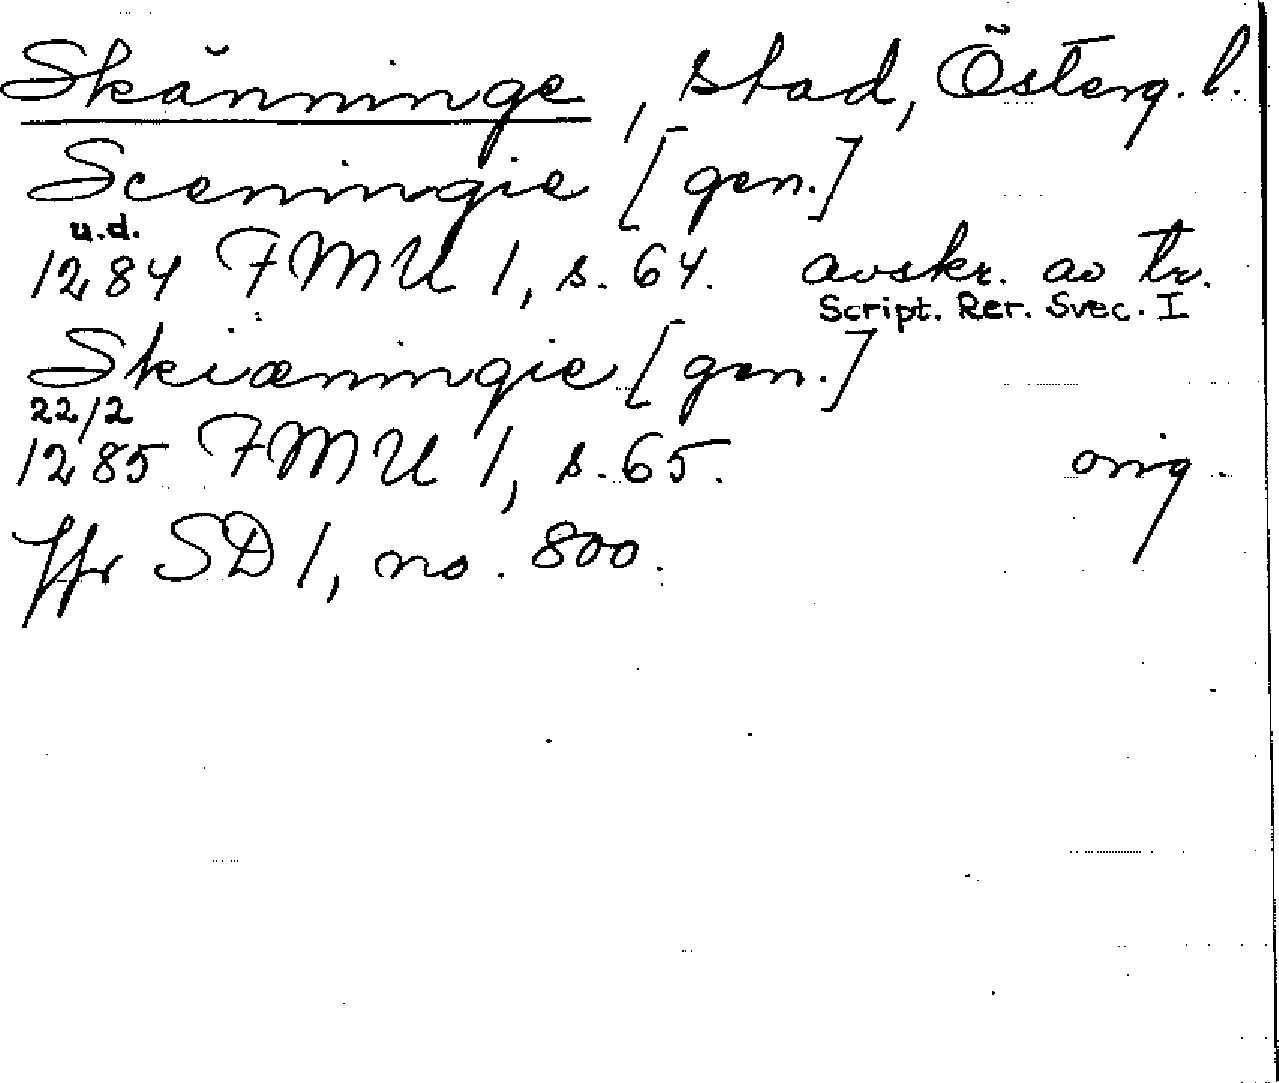 Skänninge, stad, Österg. l.
Sceningie [gen.]
u.d.
1284 FMU 1, s. 64. avskr. av tr.
Script. Rer. Svec. I
Skiæningie [gen.]
22/2
1285 FMU 1, s. 65. orig.
Jfr SD 1, no. 800.